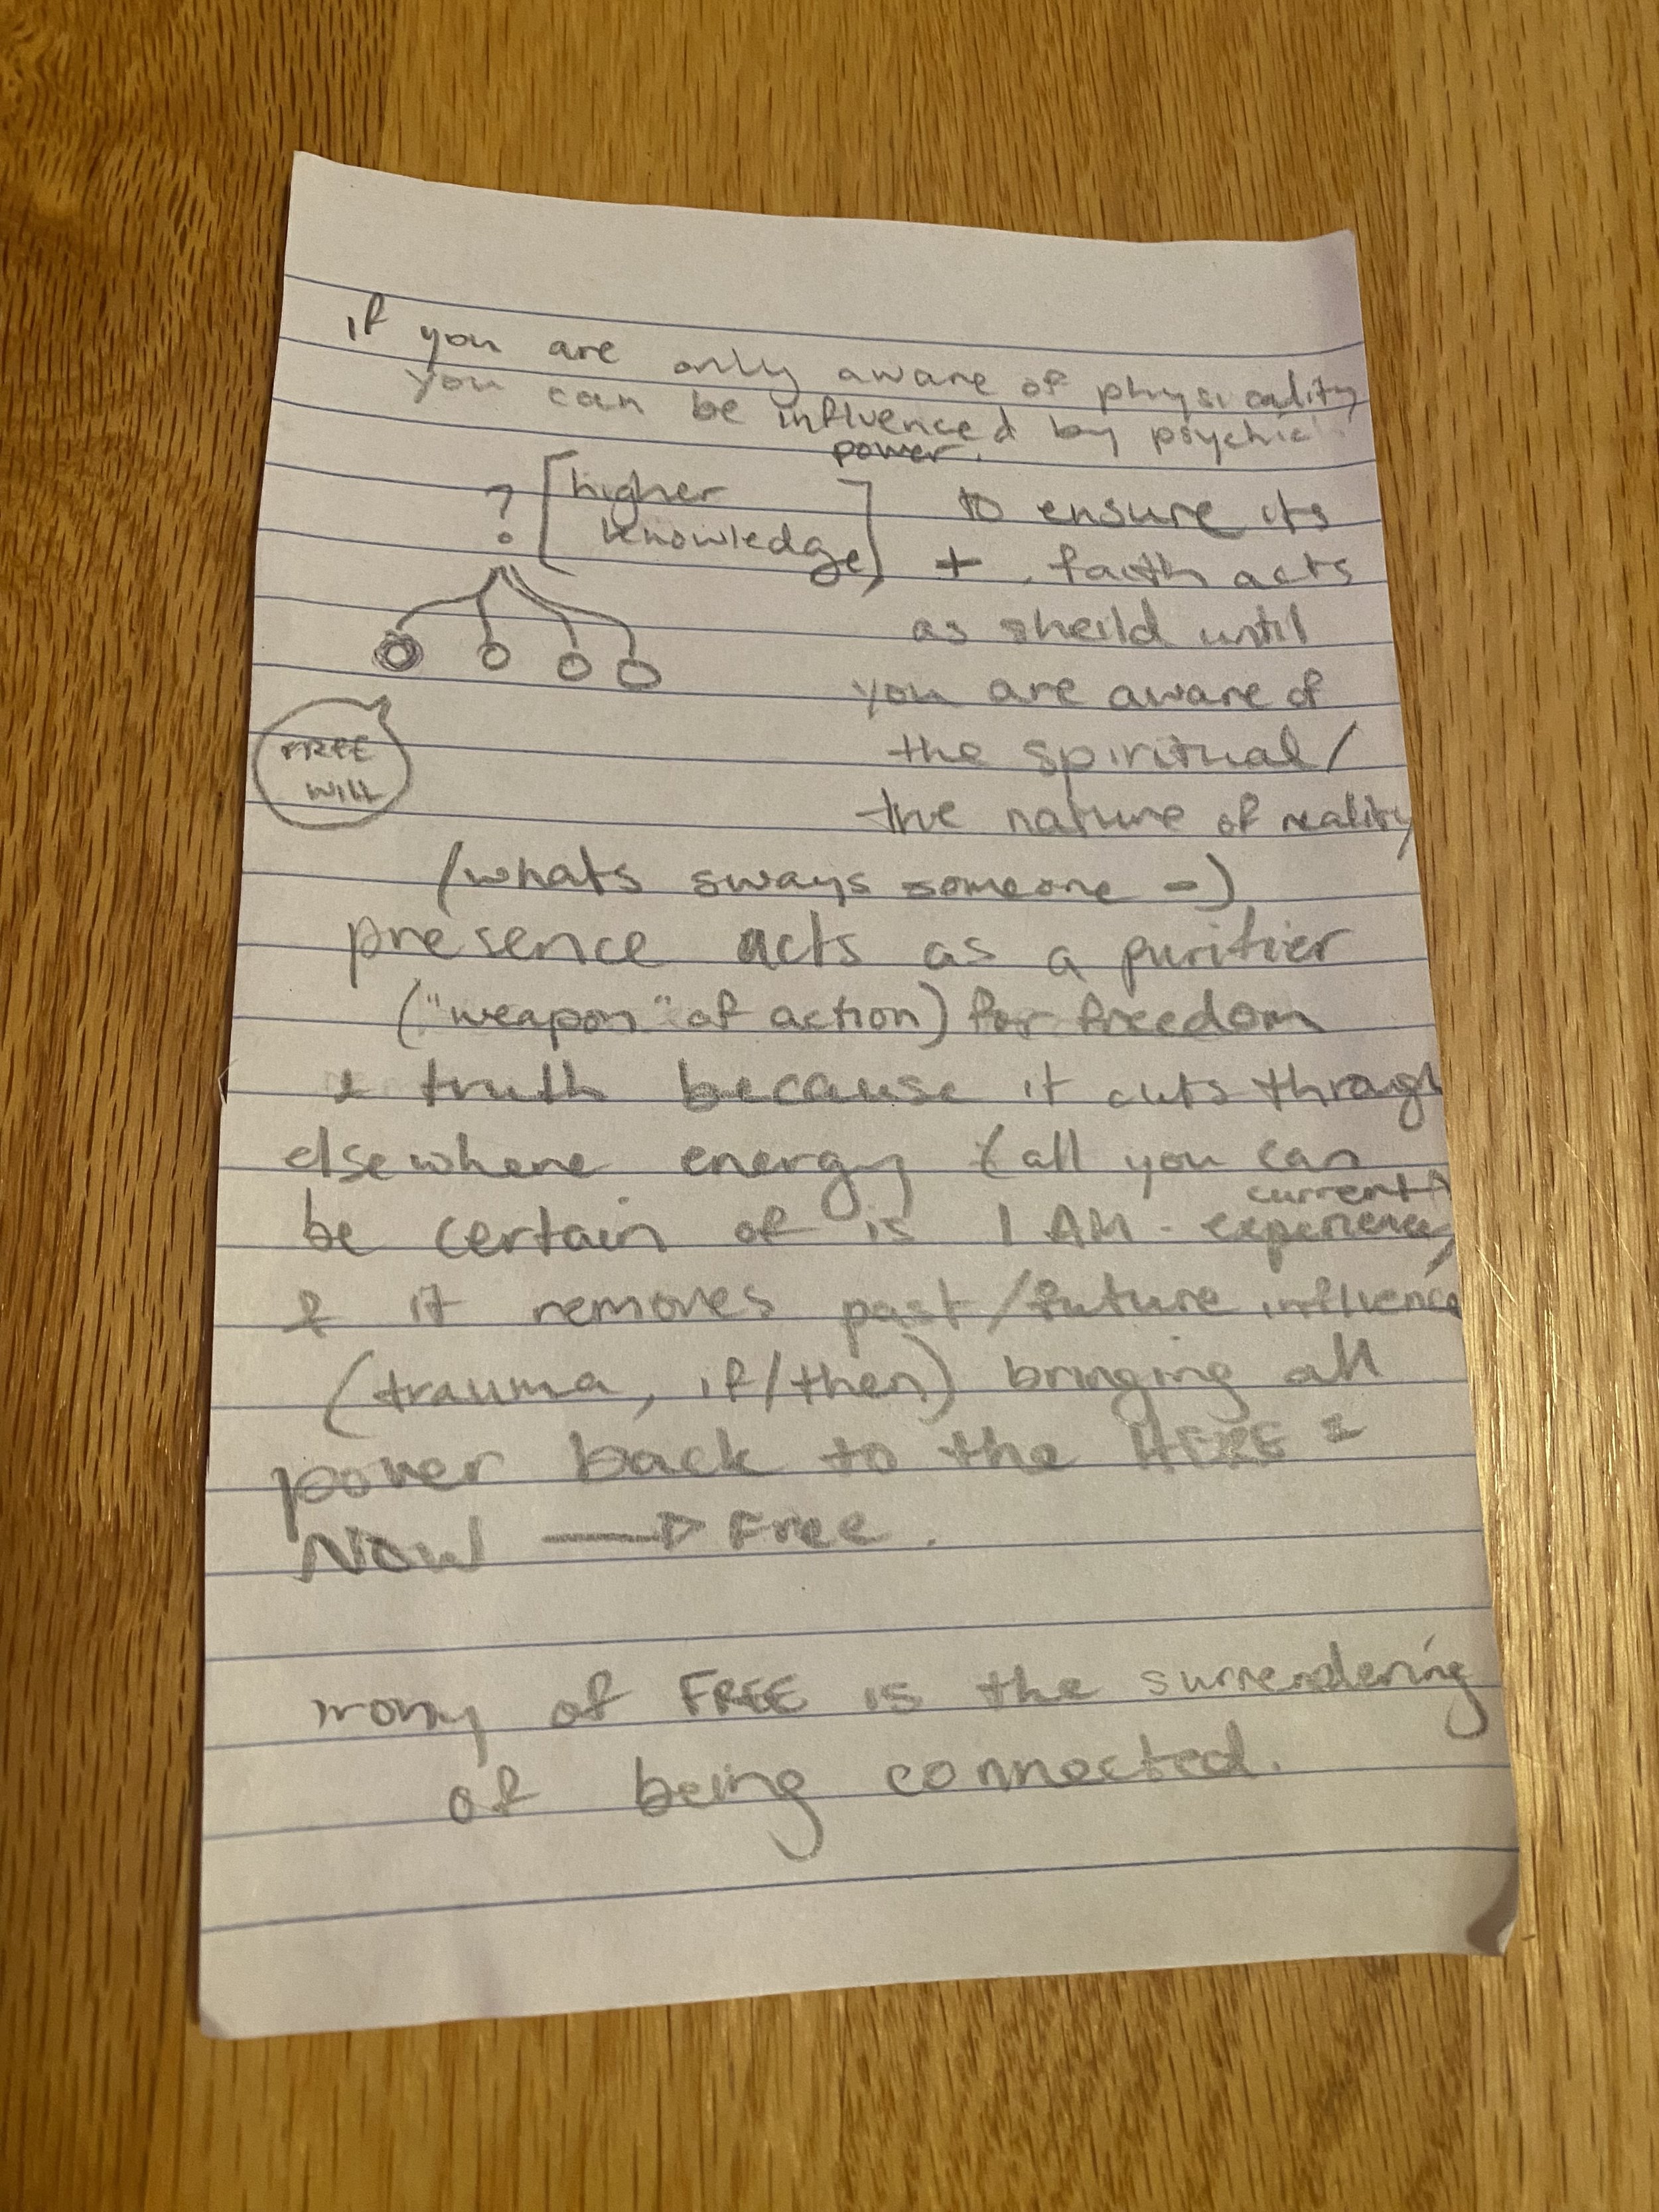 if you are only aware of physicality
you can be influenced by psychic
power.
? [higher
knowledge]
to ensure its
+ faith acts
as sheild until
you are aware of
the spiritual/
the nature of reality
FREE
WILL
(whats sways someone -)
presence acts as a purifier
("weapon" of action) for freedom
& truth because it cuts through
elsewhere energy (all you can
be certain of is I AM - current experience)
& it removes past/future influence
(trauma, if/then) bringing all
power back to the HERE &
NOW → Free.
irony of FREE is the surrendering
of being connected.